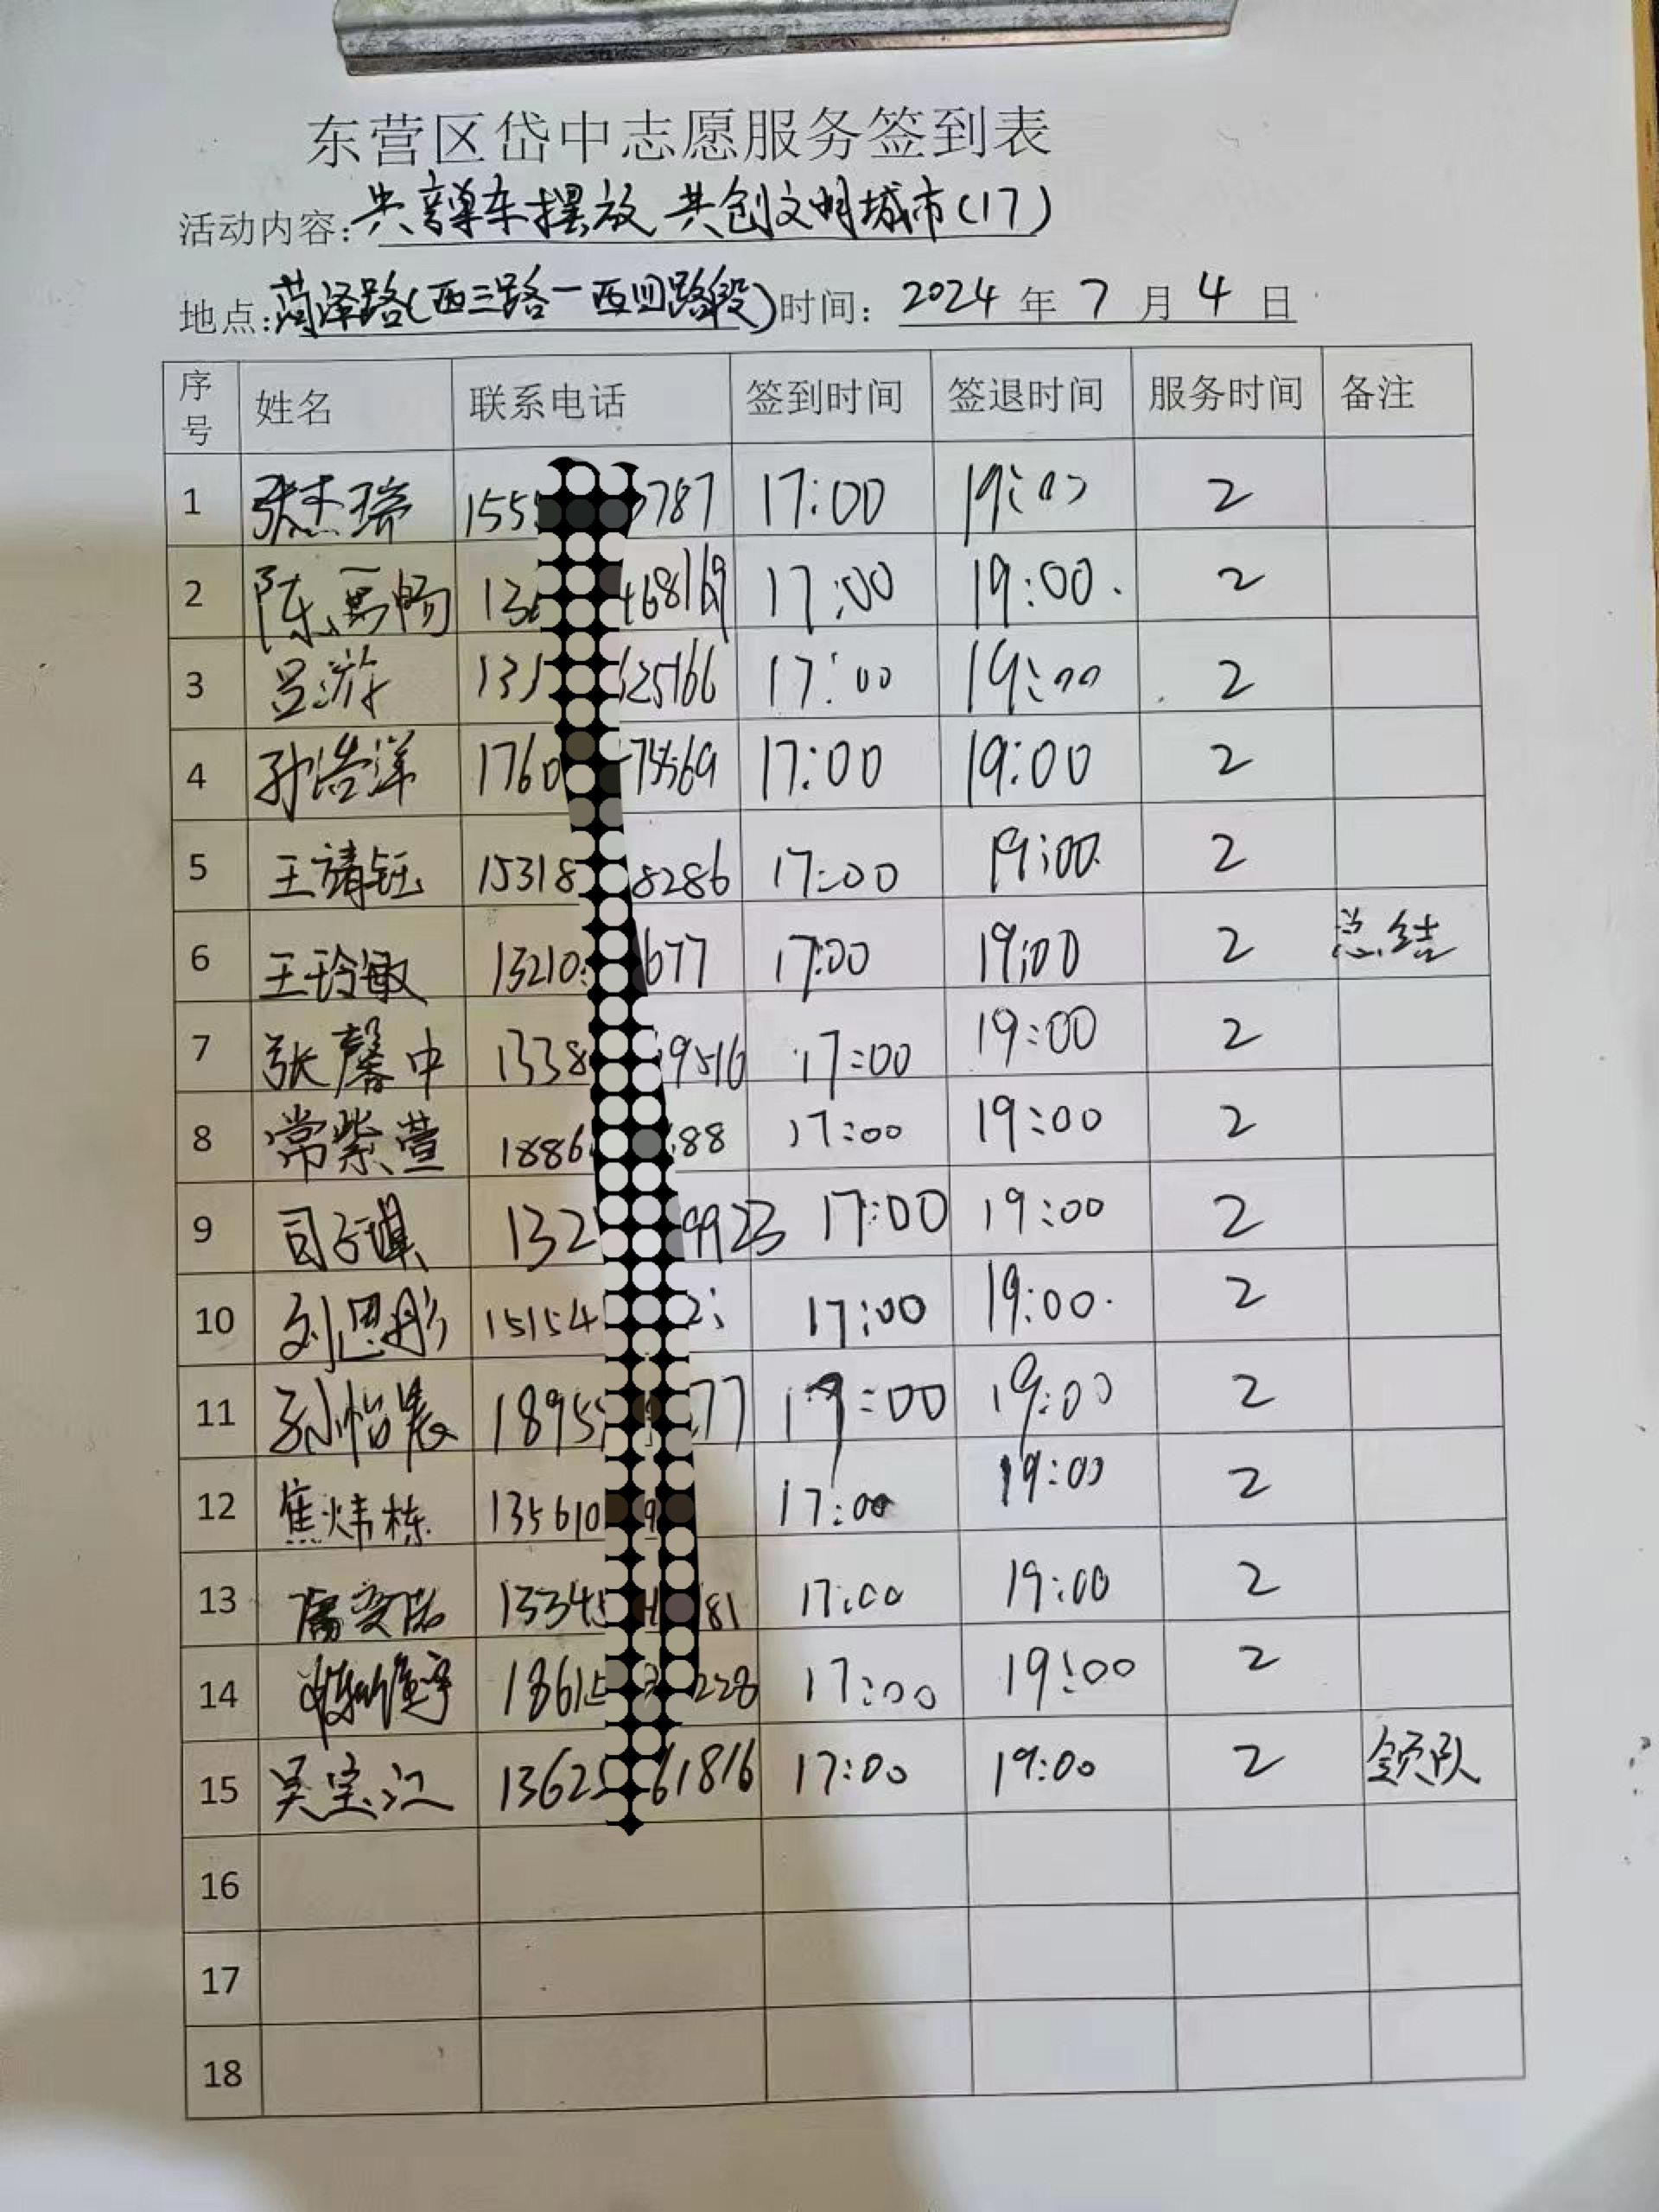 东营区岱中志愿服务签到表
活动内容:共享单车摆放 共创文明城市(17)
地点:菏泽路(西三路一西四路段)时间: 2024 年 7 月 4 日
序号 姓名 联系电话 签到时间 签退时间 服务时间 备注
1 张杰瑞 155 787 17:00 19:00 2
2 陈 畅 13 468169 17:00 19:00. 2
3 吕游 131 25166 17:00 19:00 2
4 孙浩洋 1760 75569 17:00 19:00 2
5 王靖钰 15318 8286 17:00 19:00. 2
6 王玲敏 13210 677 17:00 19:00 2 总结
7 张馨中 1338 9516 17:00 19:00 2
8 常紫萱 1886 88 17:00 19:00 2
9 司子琪 132 9923 17:00 19:00 2
10 刘恩彤 15154 17:00 19:00. 2
11 孙怡宸 1895 77 17:00 19:00 2
12 焦炜栋 135610 9 17:00 19:00 2
13 1334 81 17:00 19:00 2
14 1861 228 17:00 19:00 2
15 吴宝江 1362 61816 17:00 19:00 2 领队
16
17
18